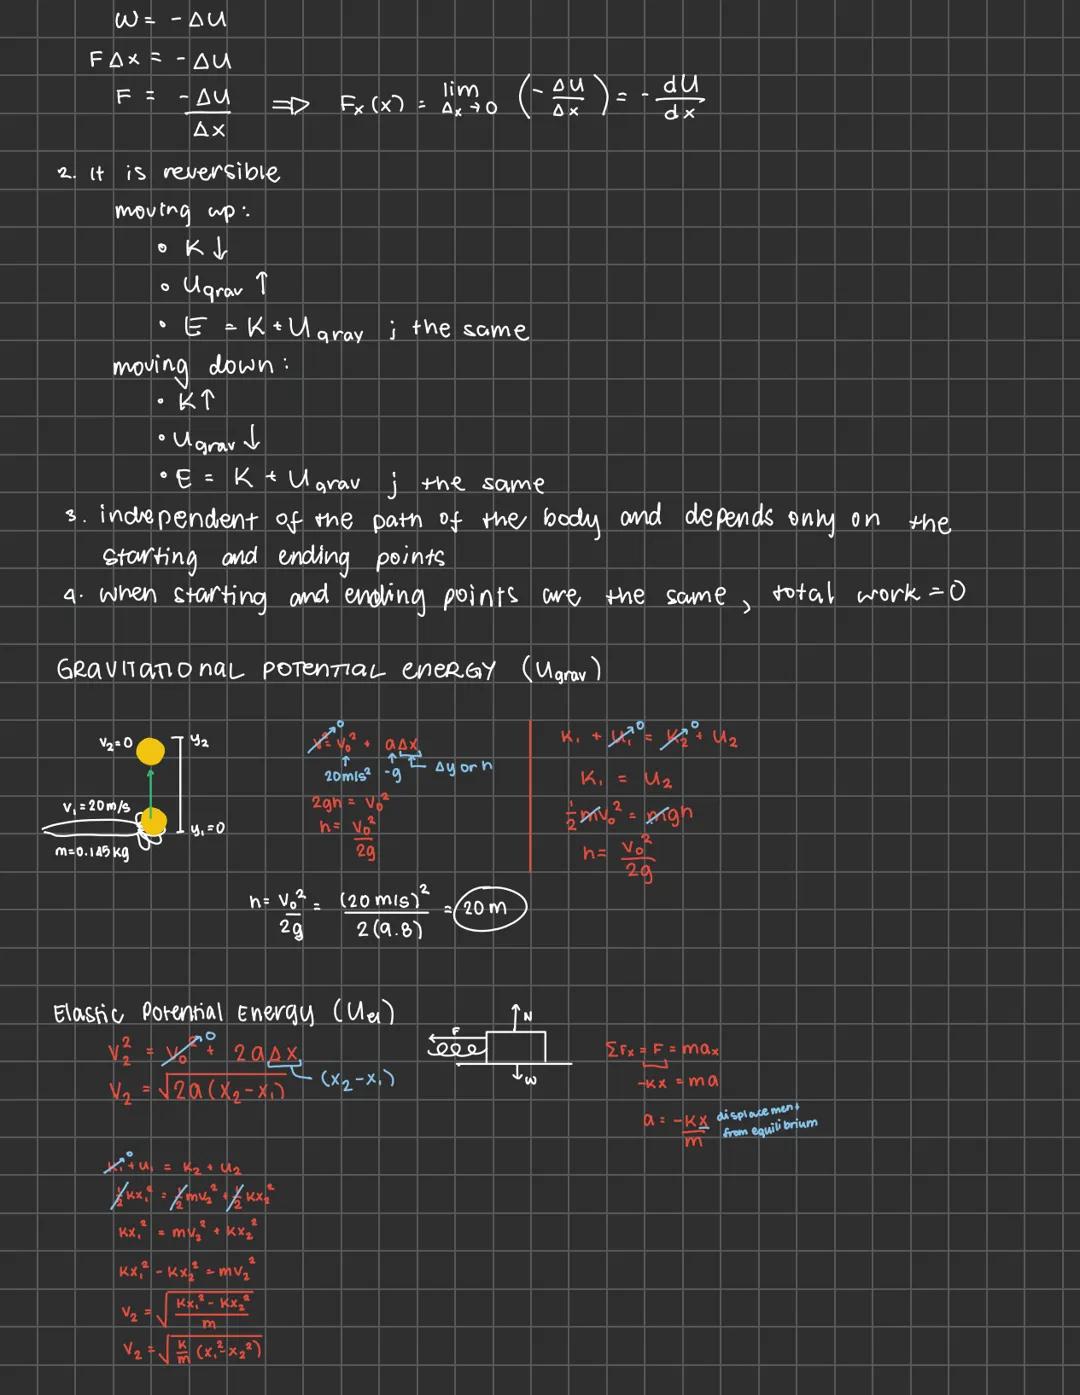 W = - ΔU
F Δx = - ΔU
F = - ΔU / Δx ⇒ Fx (x) = lim Δx → 0 (- ΔU / Δx) = - dU / dx
2. It is reversible
moving up:
• K ↓
• Ugrav ↑
• E = K + Ugrav ; the same
moving down:
• K ↑
• Ugrav ↓
• E = K + Ugrav ; the same
3. independent of the path of the body and depends only on the
starting and ending points
4. when starting and ending points are the same, total work = 0
GRAVITATIONAL POTENTIAL ENERGY (Ugrav)
V₂ = 0
y₂
V₁ = 20 m/s
y₁ = 0
m = 0.145 kg
v² = v₀² + a Δx
0
20 m/s² -g Δy or h
2gh = v₀²
h = v₀² / 2g
K₁ + U₁ = K₂ + U₂
0 0
K₁ = U₂
1/2 mv₀² = mgh
h = v₀² / 2g
h = v₀² / 2g = (20 m/s)² / 2(9.8) = 20 m
Elastic Potential Energy (Uel)
V₂² = V₀² + 2a Δx
0
(x₂ - x₁)
V₂ = √2a (x₂ - x₁)
F
N
w
ΣFx = F = max
-kx = ma
a = -kx / m
displacement
from equilibrium
K₁ + U₁ = K₂ + U₂
0
1/2 kx₁² = 1/2 mv₂² + 1/2 kx₂²
kx₁² = mv₂² + kx₂²
kx₁² - kx₂² = mv₂²
V₂ = √kx₁² - kx₂² / m
V₂ = √k/m (x₁² - x₂²)